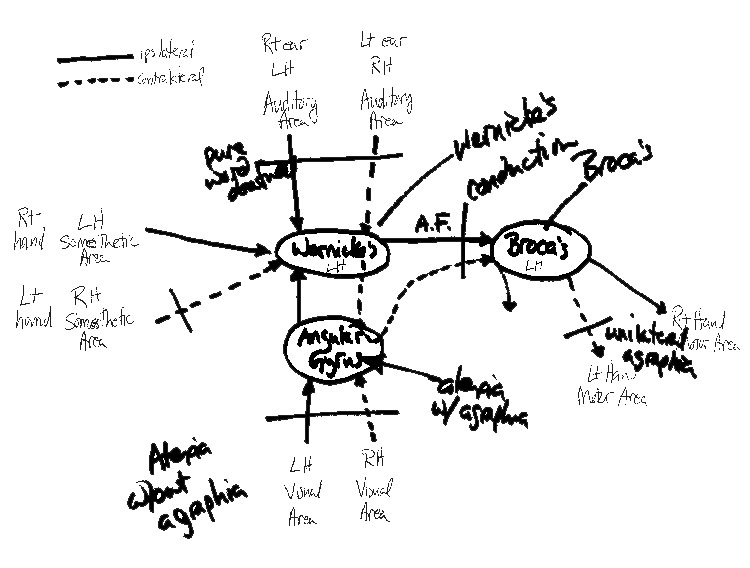 ipsilateral
contralateral
Rt ear
LH
Auditory
Area
Lt ear
RH
Auditory
Area
pure
word
Wernicke's
conduction
Broca's
Rt
hand
LH
Somesthetic
Area
A.F.
Wernicke's
LH
Broca's
LH
Lt
hand
RH
Somesthetic
Area
Angular
Gyrus
Rt Hand
Area
unilateral
agraphia
Lt
Motor Area
alexia
w/ agraphia
Alexia
w/out
agraphia
LH
Visual
Area
RH
Visual
Area